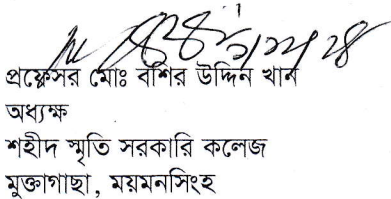 প্রফেসর মোঃ বশির উদ্দিন খান
অধ্যক্ষ
শহীদ স্মৃতি সরকারি কলেজ
মুক্তাগাছা, ময়মনসিংহ